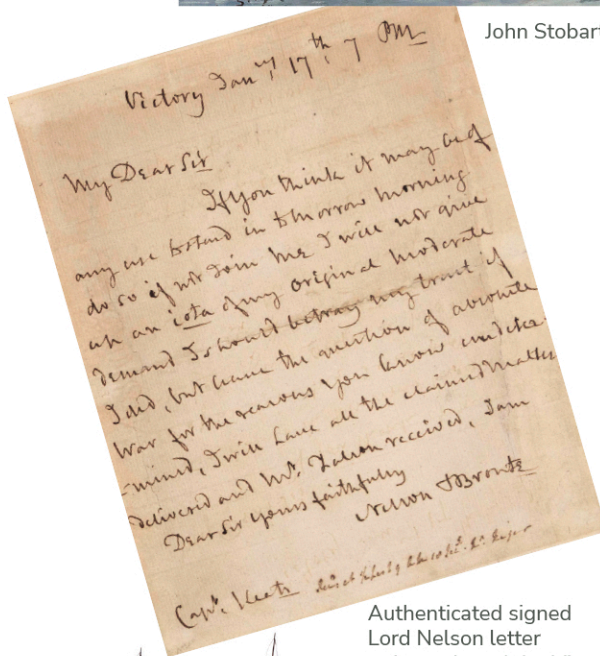 John Stobart
Victory Jany. 17th, 7 PM
My Dear Sir
If you think it may be of
any use to stand in tomorrow morning
do so if not Join me I will not give
up an iota of my original moderate
demand I should betray my trust if
I did, but leave the question of absolute
War for the reasons you know undeter-
-mined, I will have all the claimed Maltese
delivered and Mr. received, I am
Dear Sir yours faithfully
Nelson & Bronte
Capt. Keats
Authenticated signed
Lord Nelson letter